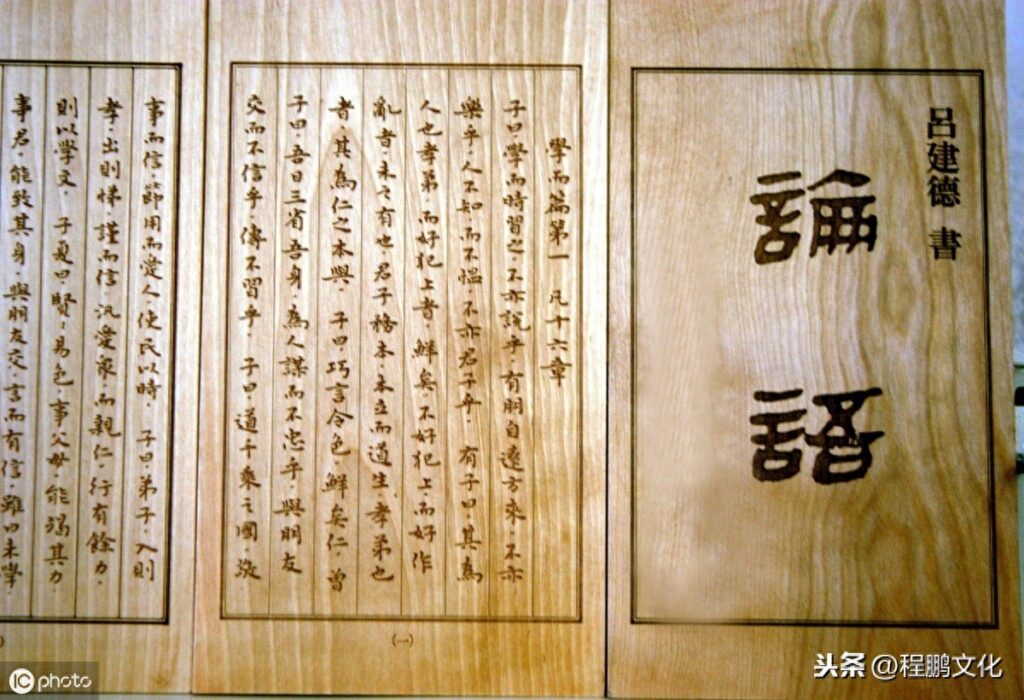 呂建德 書
論語
學而篇第一 凡十六章
子曰．學而時習之．不亦說乎．有朋自遠方來．不亦
樂乎．人不知．而不慍．不亦君子乎． 有子曰．其為
人也孝弟．而好犯上者．鮮矣．不好犯上．而好作
亂者．未之有也．君子務本．本立而道生．孝弟也
者．其為仁之本與． 子曰．巧言令色．鮮矣仁． 曾
子曰．吾日三省吾身．為人謀．而不忠乎．與朋友
交．而不信乎．傳不習乎． 子曰．道千乘之國．敬
(一)
事而信．節用而愛人．使民以時． 子曰．弟子．入則
孝．出則悌．謹而信．汎愛眾．而親仁．行有餘力．
則以學文． 子夏曰．賢賢易色．事父母．能竭其力．
事君．能致其身．與朋友交．言而有信．雖曰未學．
IC photo
头条 @程鹏文化